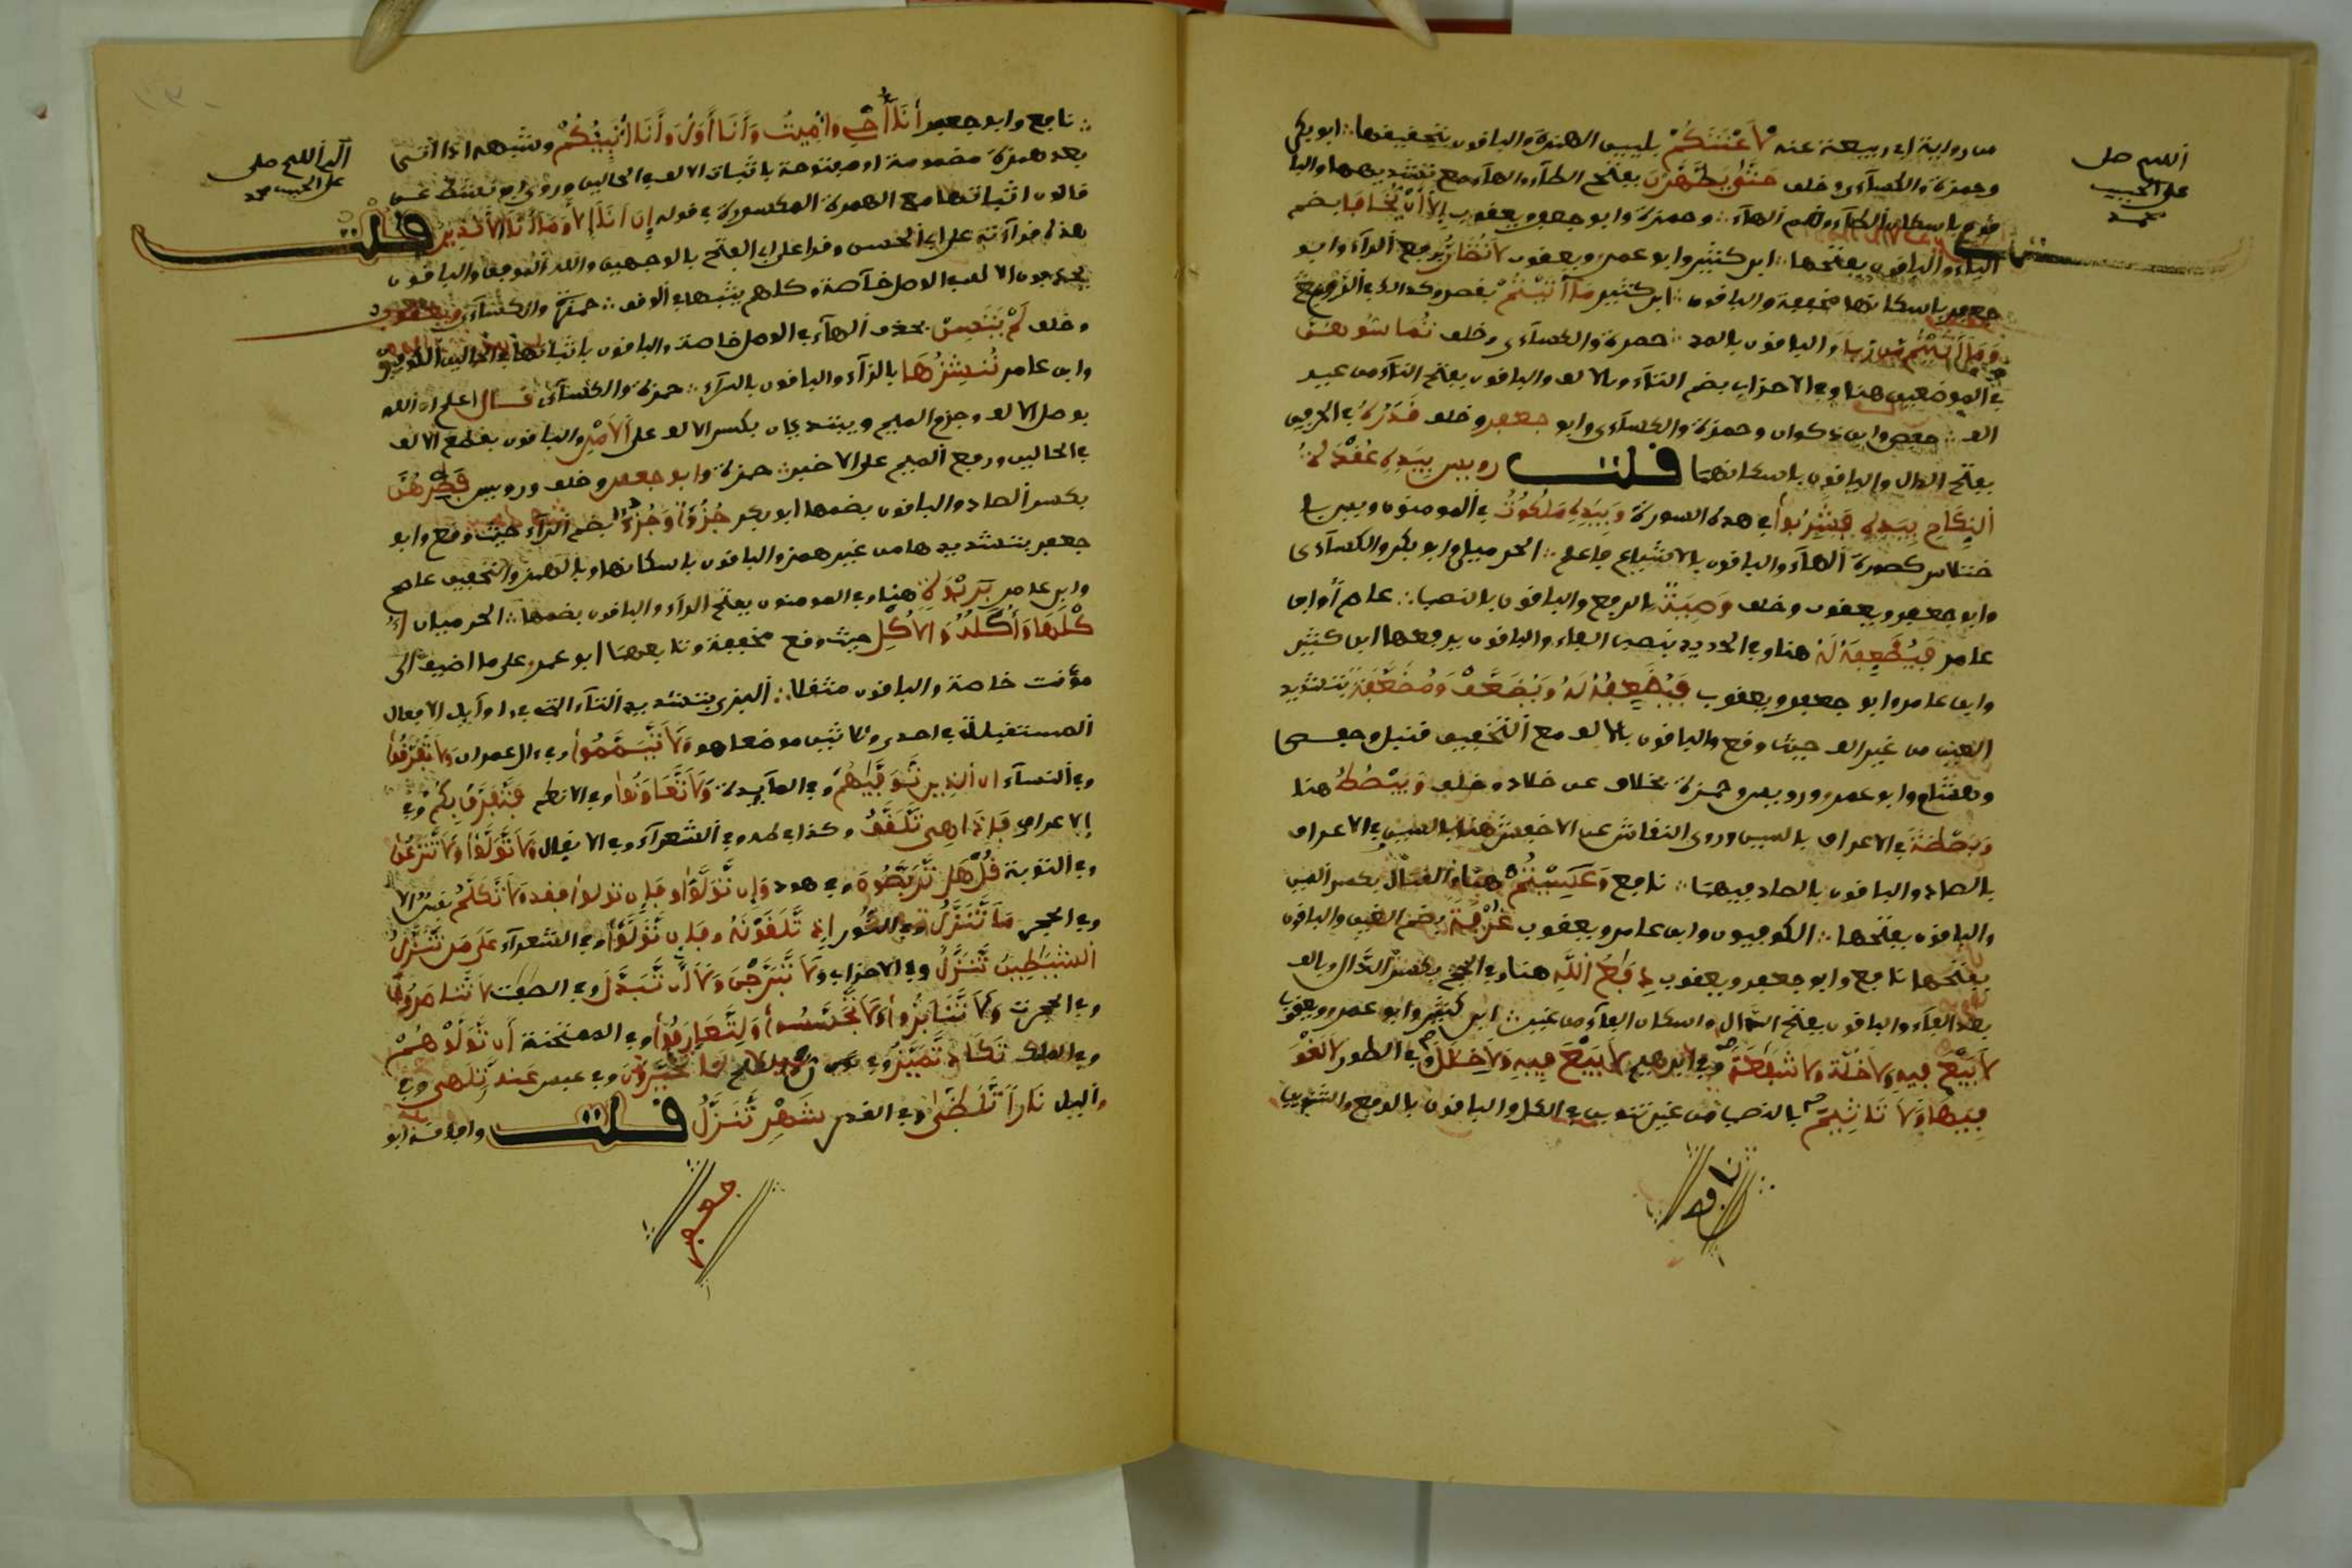 من رواية ابي ربيعة عنه لَأَعْنَتَكُمْ بتليين الهمزة والباقون بتحقيقها ∴ ابو بكر
وحمزة والكسآءى وخلف حَتَّىٰ يَطَّهَّرْنَ بفتح الطآء والهآء مع تشديدهما والبا
قون باسكان الطآء وضم الهآء ∴ وحمزة وابو جعفر ويعقوب إِلَّا أَنْ يُخَافَا بضم
اليآء والباقون بفتحها ∴ ابن كثير وابو عمرو ويعقوب لَا تُضَارُّ برفع الرآء وابو
جعفر باسكانها مخففة والباقون ∴ ابن كثير مَا أَتَيْتُمْ بقصر وكذا في الروم
وَمَا أَتَيْتُمْ مِنْ رِبًا والباقون بالمد ∴ حمزة والكسآءى وخلف تُمَاسُّوهُنَّ
في الموضعين هنا وفي الاحزاب بضم التآء وبالالف والباقون بفتح التآء من غير
الف ∴ حفص وابن ذكوان وحمزة والكسآءى وابو جعفر وخلف قَدَرُهُ في الحرفين
بفتح الدال والباقون باسكانهما قلت رويس بِيَدِهِ عُقْدَةُ
النِّكَاحِ بِيَدِهِ فَشَرِبُوا في هذه السورة وَبِيَدِهِ مَلَكُوتُ في المومنون ويس با
ختلاس كسرة الهآء والباقون بالاشباع فاعلم ∴ الحرميان وابو بكر والكسآءى
وابو جعفر ويعقوب وخلف وَصِيَّةٌ بالرفع والباقون بالنصب ∴ عاصم وابن
عامر فَيُضَٰعِفَهُ لَهُ هنا وفي الحديد بنصب الفاء والباقون برفعها ابن كثير
وابن عامر وابو جعفر ويعقوب فَيُضَعِّفُهُ لَهُ وَيُضَعَّفْ وَمُضَعَّفَةً بتشديد
العين من غير الف حيث وقع والباقون بالالف مع التخفيف قنبل وحفص
وهشام وابو عمرو ورويس وحمزة بخلاف عن خلاد وخلف وَيَبْسُطُ هنا
وَبَصْطَةً في الاعراف بالسين وروى النقاش عن الاخفش هنا بالسين وفي الاعراف
بالصاد والباقون بالصاد فيهما ∴ نافع عَسِيتُمْ هنا وفي القتال بكسر السين
والباقون بفتحها ∴ الكوفيون وابن عامر ويعقوب غُرْفَةً بضم الغين والباقون
بفتحها نافع وابو جعفر ويعقوب دِفَٰعُ اللَّهِ هنا وفي الحج بكسر الدال وبالف
بعد الفآء والباقون بفتح الدال واسكان الفآء من غير ∴ ابن كثير وابو عمرو ويعقوب
لَا بَيْعَ فِيهِ وَلَا خُلَّةَ وَلَا شَفَٰعَةَ وفي ابرهيم لَا بَيْعَ فِيهِ وَلَا خِلَٰلَ وفي الطور لَا لَغْوَ
فِيهَا وَلَا تَأْثِيمَ بالنصب من غير تنوين في الكل والباقون بالرفع والتنوين
نافع
اللهم صل
على الحبيب
محمد
∴ نافع وابو جعفر أَنَا أُحْيِ وَأُمِيتُ وَأَنَا أَوَّلُ وَأَنَا أُنَبِّئُكُمْ وشبهه اذا اتى
بعد همزة مضمومة او مفتوحة باثبات الالف في الحالين وروى ابو نشيط عن
قالون اثباتها مع الهمزة المكسورة في قوله إِنْ أَنَا إِلَّا وَمَا أَنَا إِلَّا نَذِيرٌ قلت
هذه قرآءته على ابي الحسن وقرا على ابي الفتح بالوجهين والله الموفق والباقون
يحذفون الالف في الوصل خآصة وكلهم يثبتها في الوقف ∴ حمزة والكسآءى ويعقوب
وخلف لَمْ يَتَسَنَّ بحذف الهآء في الوصل خاصة والباقون باثباتها في الحالين الكوفيون
وابن عامر نُنشِزُهَا بالزآء والباقون بالرآء ∴ حمزة والكسآءى قال اعلم ان الله
بوصل الالف وجزم الميم ويبتديان بكسر الالف على الأمر والباقون بقطع الالف
في الحالين ورفع الميم على الاخبر ∴ حمزة وابو جعفر وخلف ورويس فَصِرْهُنَّ
بكسر الصاد والباقون بضمها ابو بكر جُزُءًا وَجُزُءٌ بضم الزآء حيث وقع وابو
جعفر بتشديدها من غير همز والباقون باسكانها وبالهمز والتخفيف عاصم
وابن عامر بِرَبْوَةٍ هنا وفي المومنون بفتح الرآء والباقون بضمها ∴ الحرميان
أُكْلَهَا وَأُكْلُهُ وَالْأُكْلِ حيث وقع مخففة وتابعهما ابو عمرو على ما اضيف الى
مؤنث خاصة والباقون مثقلا ∴ البزى بتشديد التآء التي في اوآيل الافعال
المستقبلة في احدى وثلاثين موضعا هو وَلَا تَّيَمَّمُوا وفي ءال عمران وَلَا تَّفَرَّقُوا
وفي النسآء ان الذين تَّوَفَّيٰهُمُ وفي المآيدة وَلَا تَّعَاوَنُوا وفي الانعام فَتَّفَرَّقَ بِكُمْ وفي
الاعراف فَإِذَا هِيَ تَّلَقَّفُ وكذا في طه وفي الشعرآء وفي الانفال وَلَا تَّوَلَّوْا وَلَا تَّنَٰزَعُوا
وفي التوبة قُلْ هَلْ تَّرَبَّصُونَ وفي هود وَإِن تَّوَلَّوْا فَإِن تولوا فقد وَلَا تَّكَلَّمُ نفس الا
وفي الحجر مَا تَّنَزَّلُ وفي النور اذ تَّلَقَّوْنَهُ وفإن تَّوَلَّوْا وفي الشعرآء عَلَى مَن تَّنَزَّلُ
الشَّيَٰطِينُ تَّنَزَّلُ وفي الاحزاب وَلَا تَّبَرَّجْنَ وَلَا أَن تَّبَدَّلَ وفي الصفت لَا تَّنَاصَرُونَ
وفي الحجرت وَلَا تَّنَابَزُوا وَلَا تَّجَسَّسُوا وَلِتَّعَارَفُوا وفي الممتحنة أَن تَّوَلَّوْهُمْ
وفي الملك تَكَادُ تَّمَيَّزُ وفي لَمَا تَّخَيَّرُونَ وفي عبس عَنهُ تَّلَهَّى وفي
واليل نَارًا تَّلَظَّىٰ وفي القدر شَهْرٍ تَّنَزَّلُ قلت وافقه ابو
جعفر
اللهم صل
على الحبيب محمد